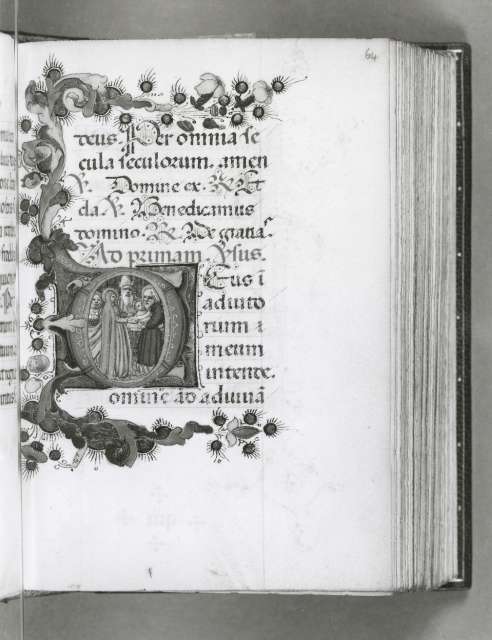 64
deus. Per omnia se
cula seculorum. amen
V. Domine ex. R. Et
da. V. Benedicamus
domino. R. De gratias.
Ad primam. Vsus.
Deus i
adiuto
rium
meum
intende.
omine ad adiuva